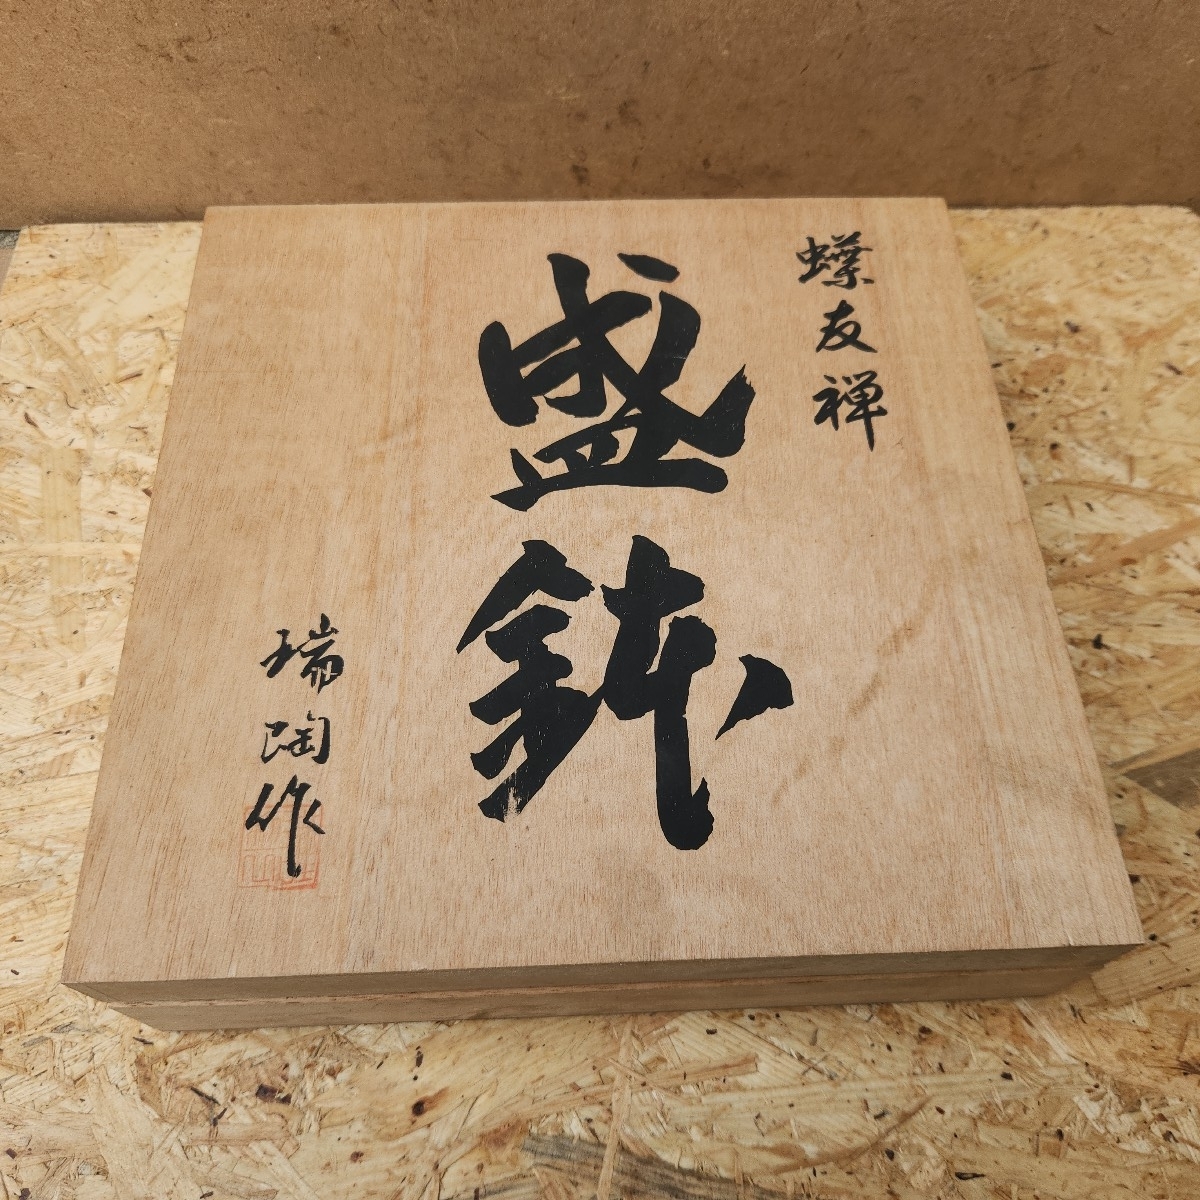 蝶友禅
盛鉢
瑞陶作